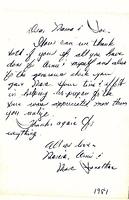 Dear Mama & Joe.
How can we thank
both of you for all you have
done for Ann, myself and also
for the generous check you
gave Dave. Your time & effort
in helping her prepare for the
was appreciated more than
you realize.
Thanks again for
everything.
All our love -
Ann,
Dave Jonathan
1951